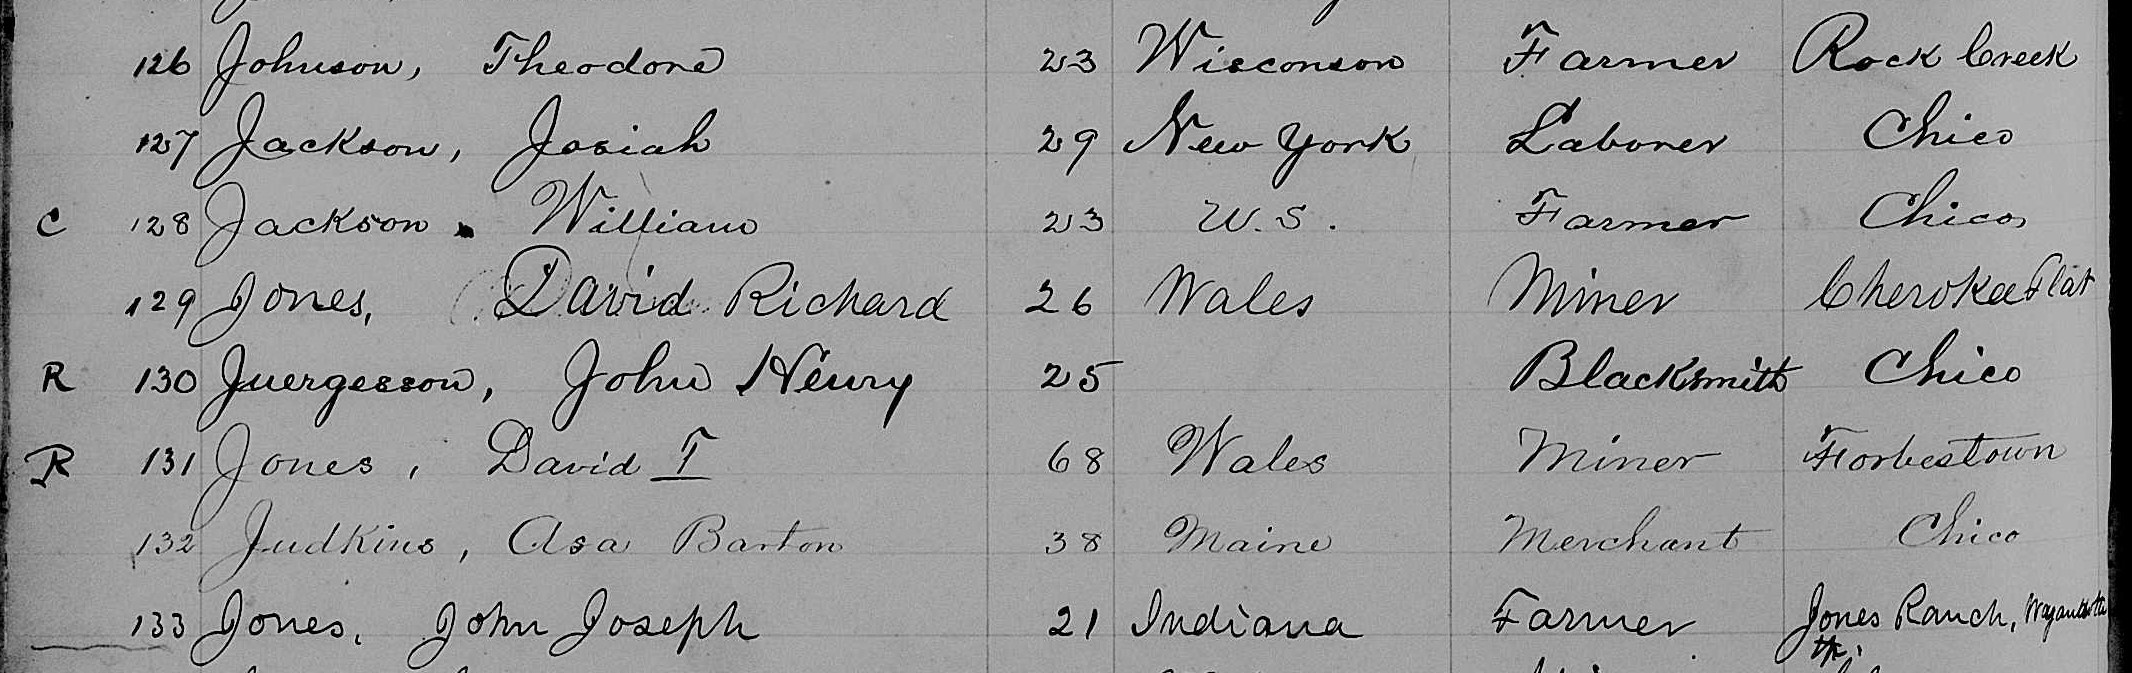 126 Johnson, Theodore 23 Wisconson Farmer Rock Creek
127 Jackson, Josiah 29 New York Laborer Chico
C 128 Jackson, William 23 U.S. Farmer Chico
129 Jones, David Richard 26 Wales Miner Cherokee Flat
R 130 Juergesson, John Henry 25 Blacksmith Chico
R 131 Jones, David T 68 Wales Miner Forbestown
132 Judkins, Asa Barton 38 Maine Merchant Chico
133 Jones, John Joseph 21 Indiana Farmer Jones Ranch,